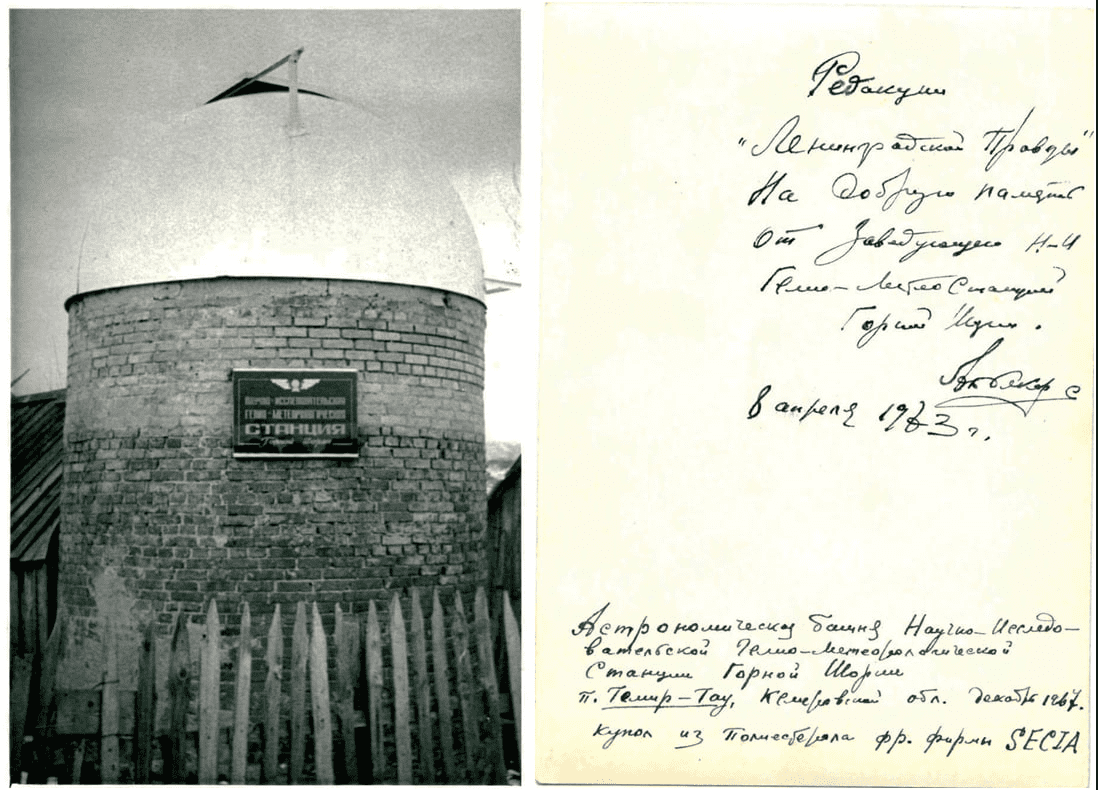 НАУЧНО-ИССЛЕДОВАТЕЛЬСКАЯ
ГЕЛИО-МЕТЕОРОЛОГИЧЕСКАЯ
СТАНЦИЯ
Горной Шории
Редакции
"Ленинградской Правды"
На добрую память
От Заведующего Н-И
Гелио-МетеоСтанцией
Горной Шории.
8 апреля 1973 г.
Астрономическая башня Научно-Исследо-
вательской Гелио-Метеорологической
Станции Горной Шории
п. Темир-Тау, Кемеровской обл. декабрь 1967.
купол из Полиэстерола фр. фирмы SECIA